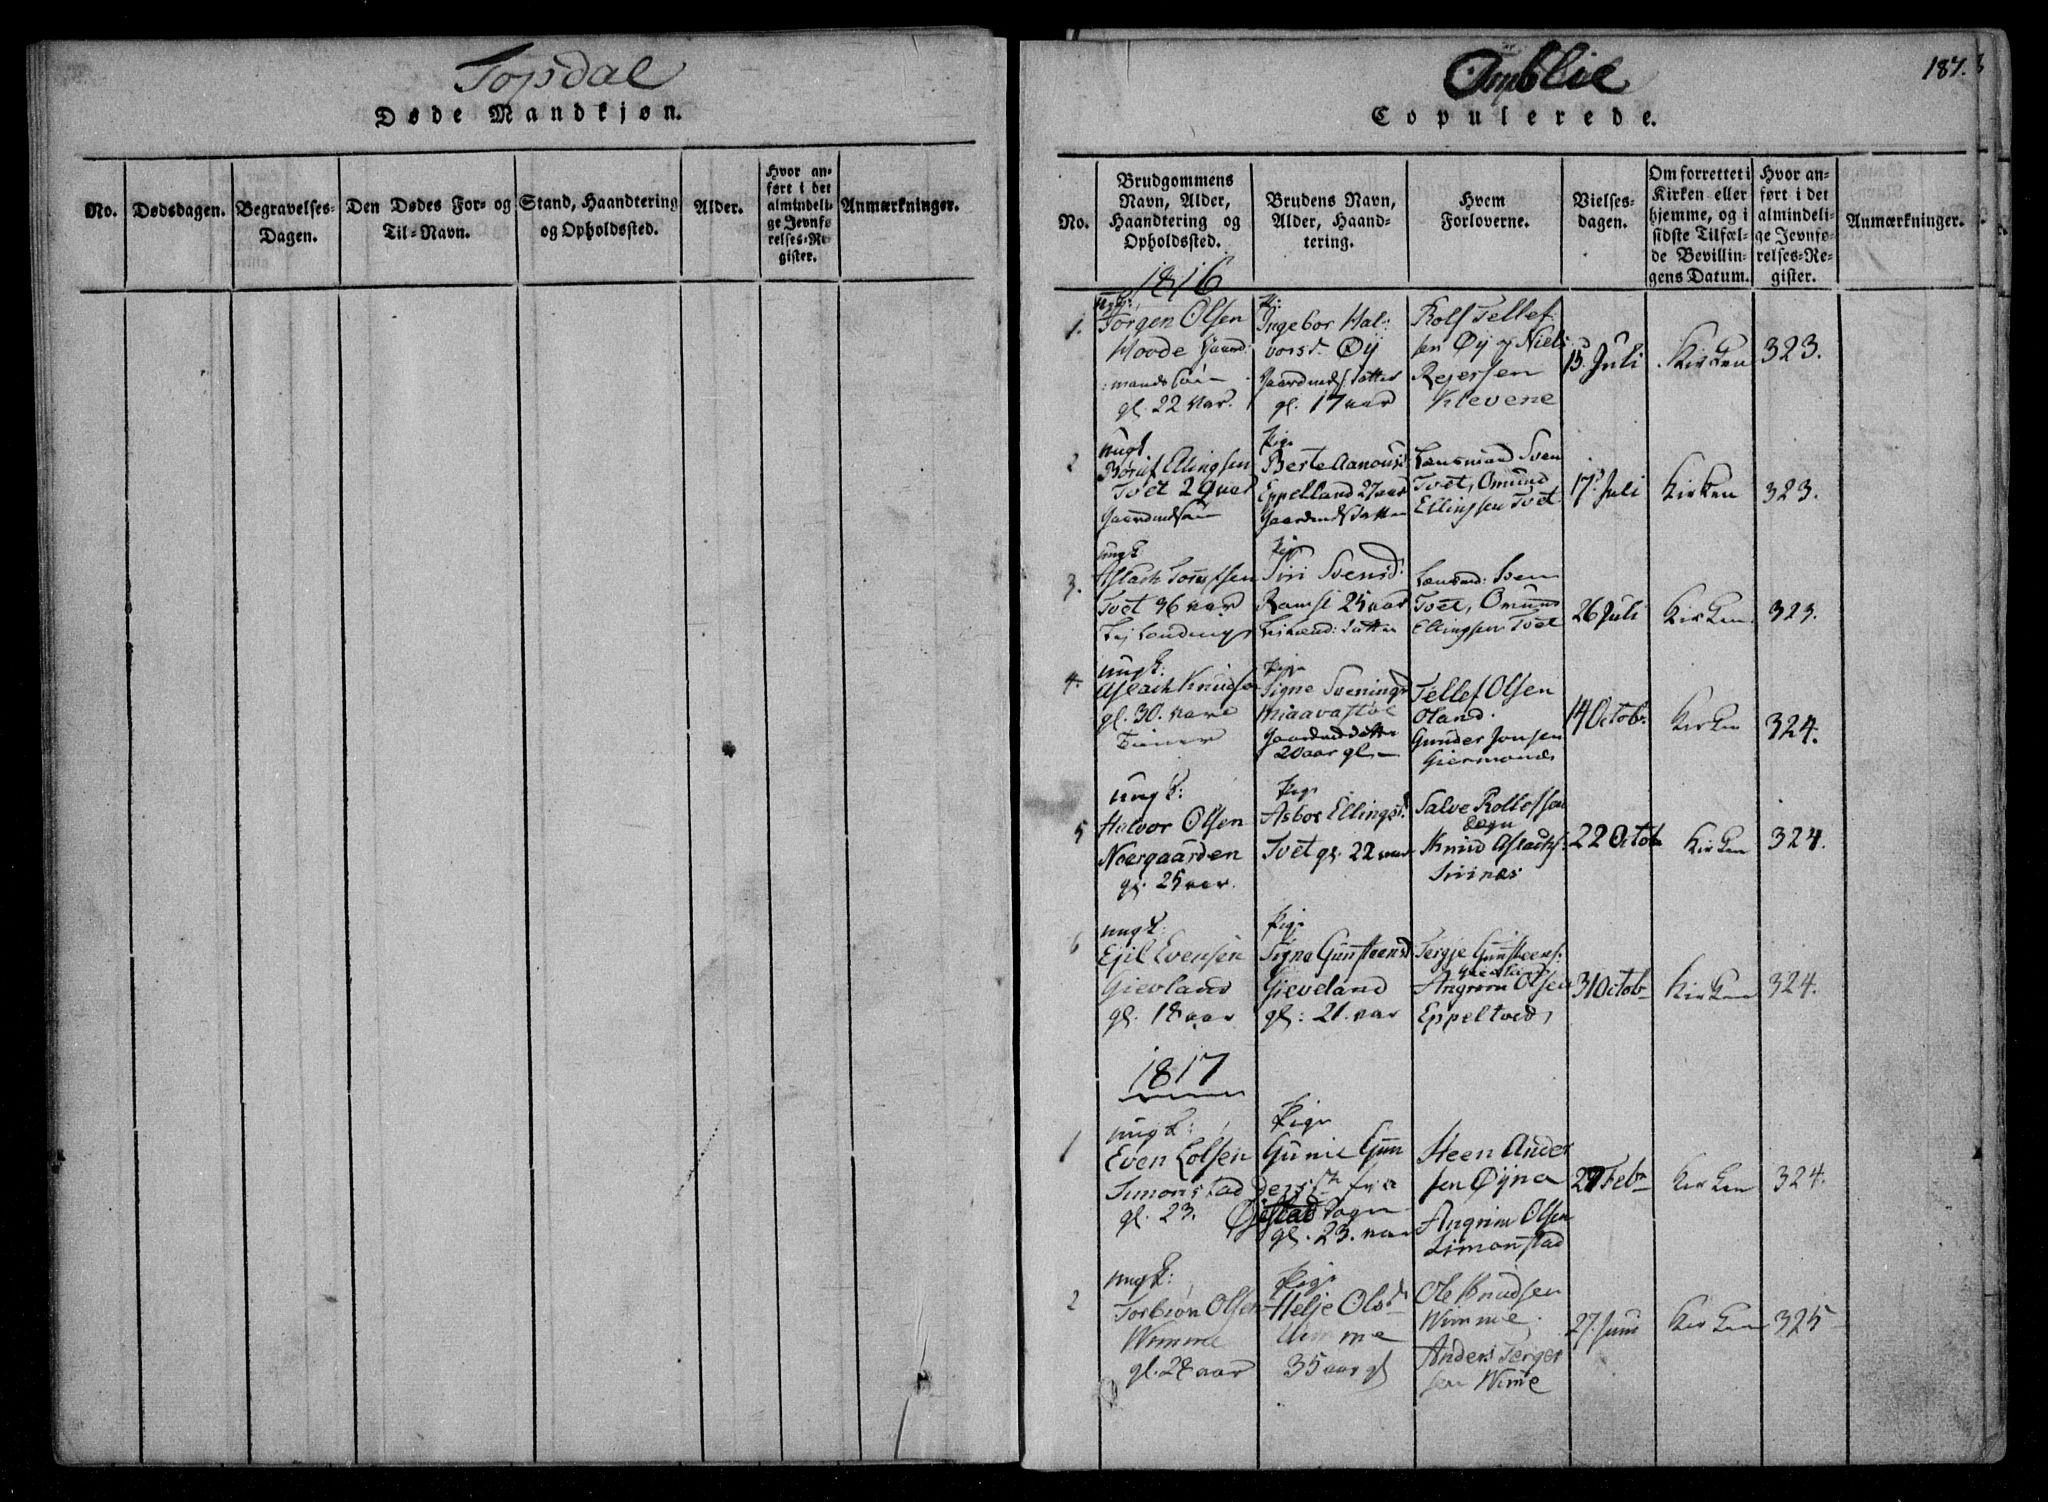 Topdal
Døde Mandkjøn.
No.
Dødsdagen.
Begravelses-
Dagen.
Den Dødes For- og
Til-Navn.
Stand, Haandtering
og Opholdssted.
Alder.
Hvor an-
ført i det
almindeli-
ge Jevnfø
relses-Re
gister.
Anmærkninger.
187.
Omblie
Copulerede.
No.
Brudgommens
Navn, Alder,
Haandtering og
Opholdssted.
Brudens Navn,
Alder, Haand-
tering.
Hvem
Forloverne.
Vielses-
dagen.
Om forrettet i
Kirken eller
hjemme, og i
sidste Tilfæl-
de Bevillin-
gens Datum.
Hvor an-
ført i det
almindeli-
ge Jevnfø-
relses-Re-
gister.
Anmærkninger.
1816
1.
ungk:
Torgen Olsen
Hovde Gaard:
mands søn
gl. 22 aar.
p:
Ingebor Hal:
vorsd. Øy
Gaardmds Datter
gl. 17 aar
Rolf Tellef:
sen Øy og Niels
Rejersen
Klevene
15 Juli
Kirken
323.
2
ungk
Ellingsen
Tvet 29 aar
Gaardmdsøn
Pige
Berte Aanousd
Eppelland 27 aar
Gaardmds Datter
Lensmand Sven
Tvet, Omund
Ellingsen Tvet
17 Juli
Kirken
323.
3.
ungk
Aslach
Tvet 36 aar
Pige
Siri Svensd:
Ramse 25 aar
Datter
Lensmd: Sven
Tvet, Omund
Ellingsen Tvet
26 Juli
Kirken
323.
4.
ungk:
Aslach Knudsen
gl. 30. aar
Pige
Signe Svenings
Miaavastøl
Gaardmd datter
20 aar gl.
Tellef Olsen
Oland.
Gunder Jonsen
Giermonds
14 Octob.
Kirken
324.
5
ungk:
Halvor Olsen
Noergaarden
gl. 25 aar.
Pige
Asbor Ellingsd.
Tvet gl. 22 aar
Salve Rollefsen
Knud Aslachs:
Sirinæs
22 Octob
Kirken
324.
6
ungk:
Ejil Evensen
Gievland
gl. 18 aar
Pige
Signe Gunsteensd
Gieveland
gl: 21. aar
Tergje Gunsteens:
Angrim Olsen
Eppeltved,
31 Octob
Kirken
324.
1817
1
ungk:
Even Lolsen
Simonstad
gl. 23.
Pige
Gunie Gun
ders
Øjestad Sogn
gl. 23. aar
Steen Ander
sen Øyna
Angrim Olsen
Simonstad
27 Febr
Kirken
324.
2
ungk:
Torbiøn Olsen
Wimme
gl. 28 aar
Pige
Helje Olsd
Wimme
35 aar gl
Ole Knudsen
Wimme,
Anders Terger
sen Wime
27. Juni
Kirken
325